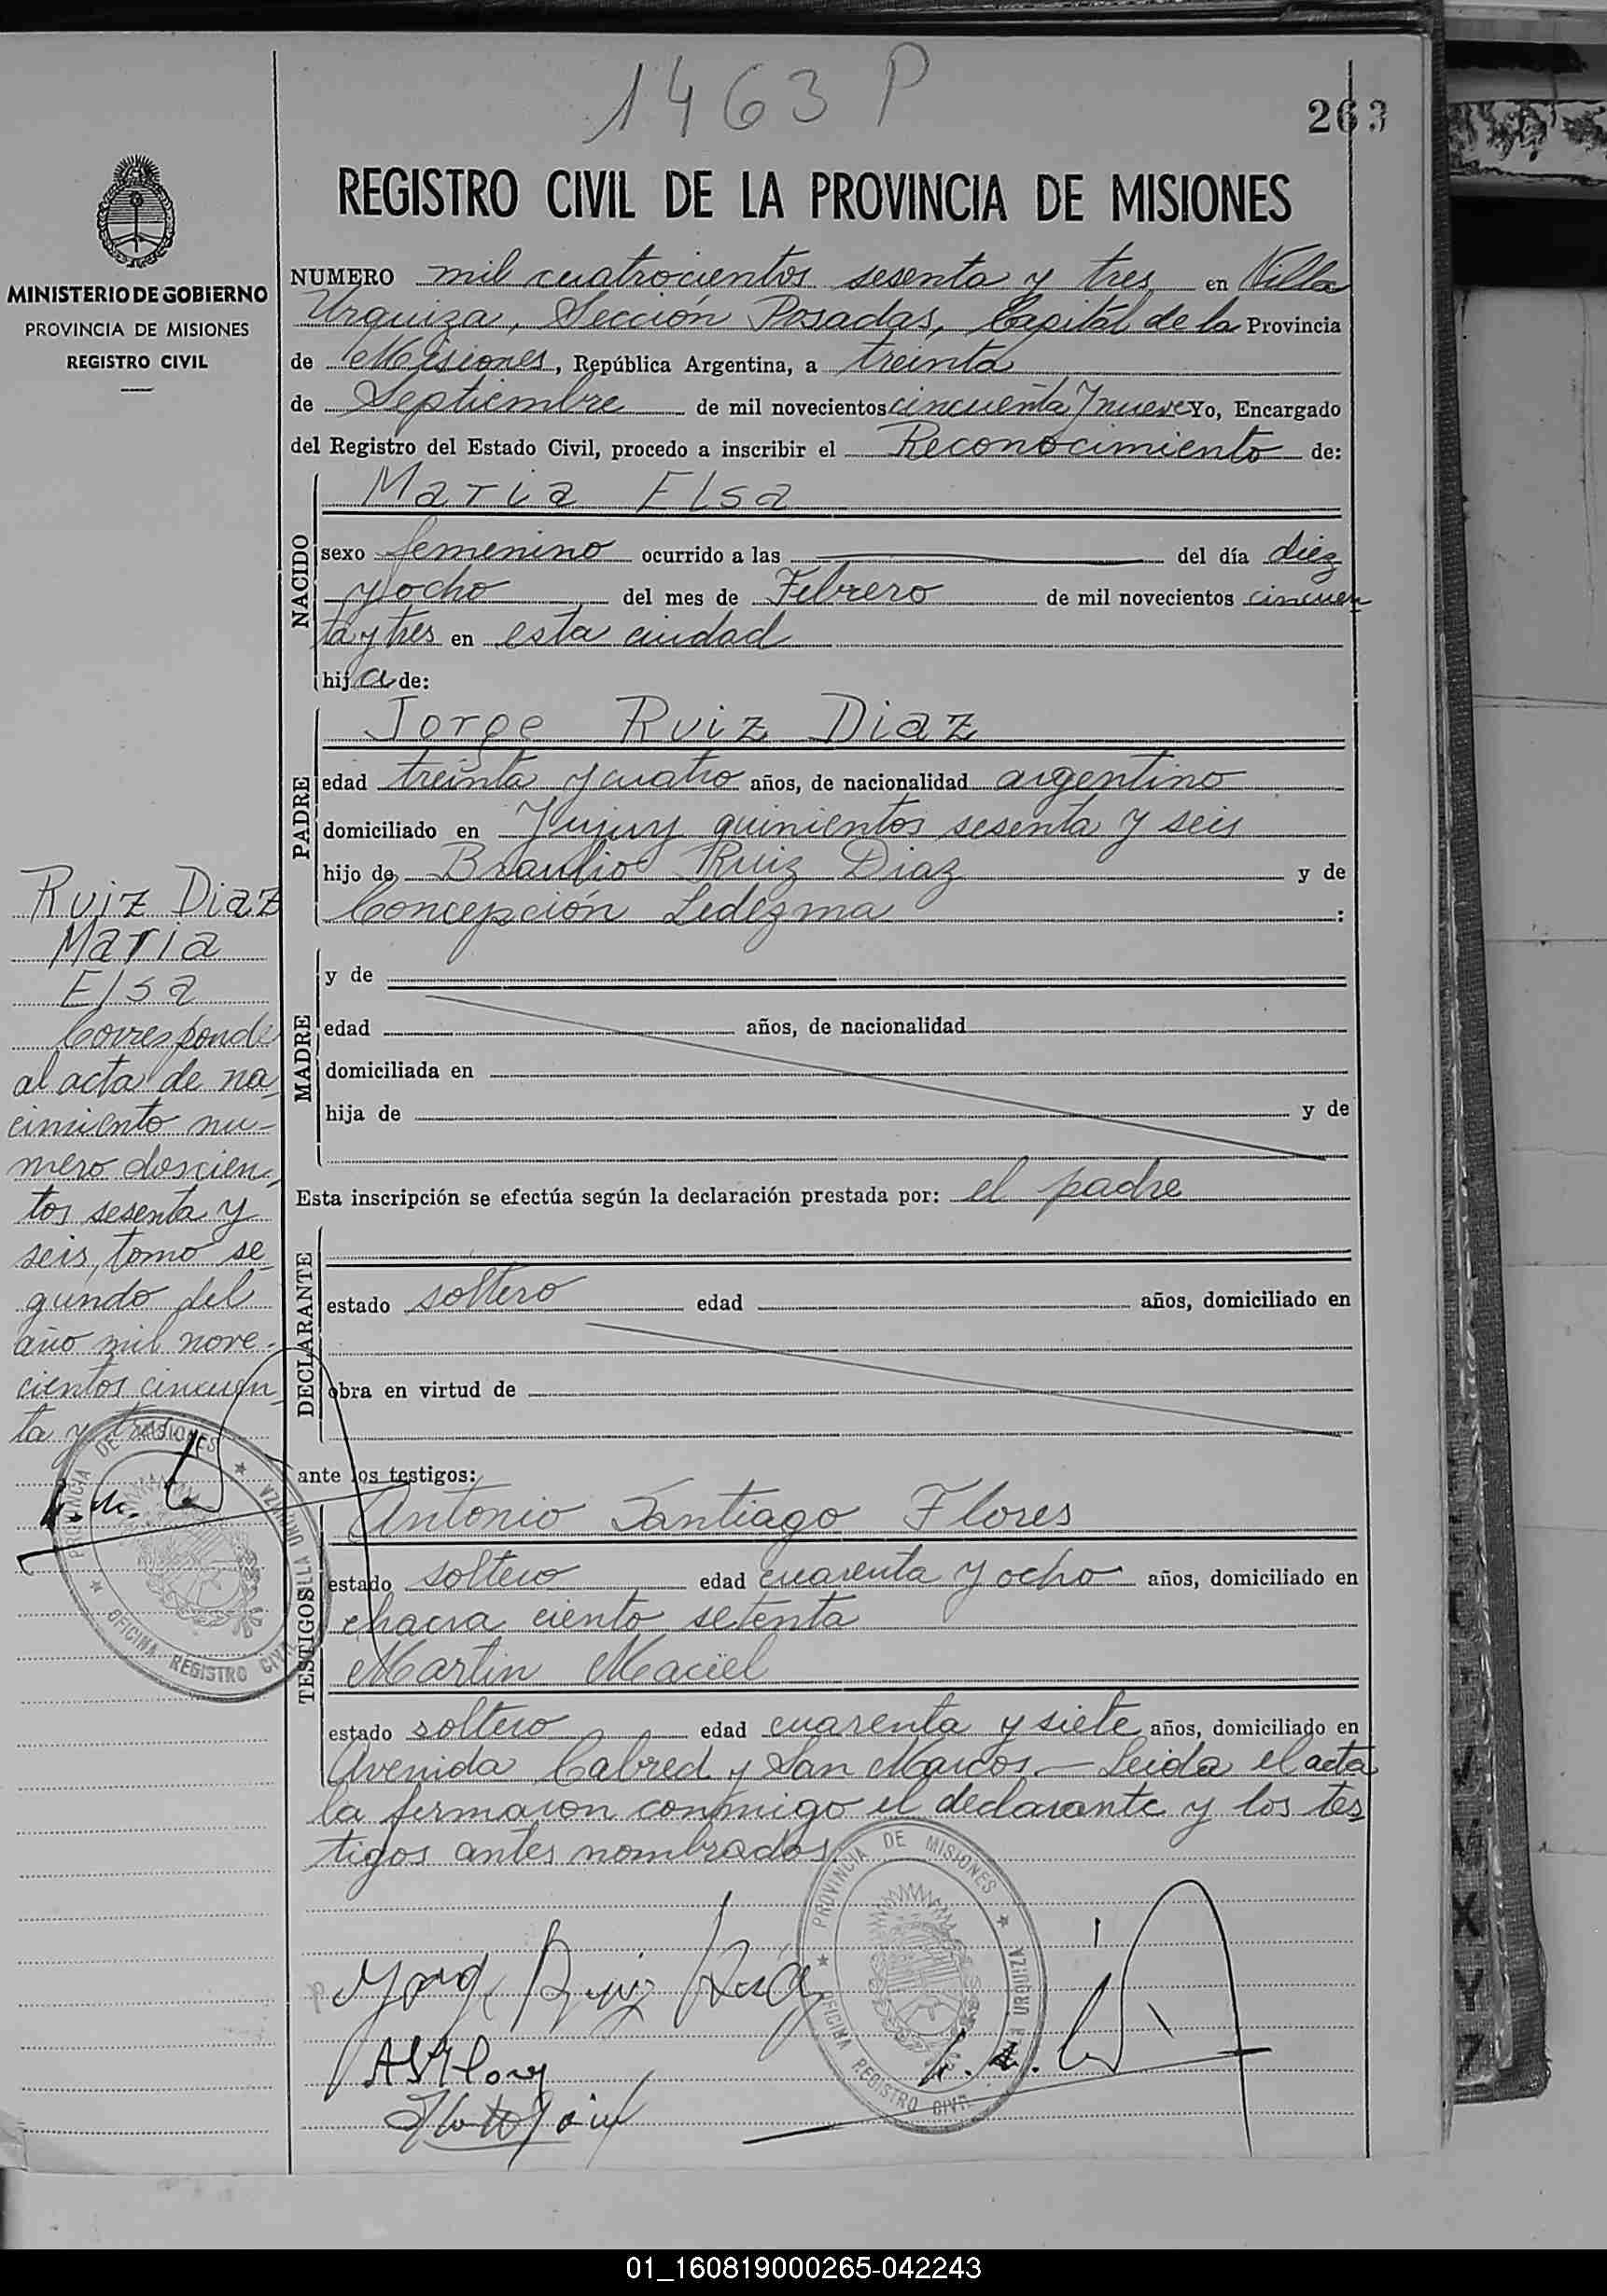 1463 P
263
REGISTRO CIVIL DE LA PROVINCIA DE MISIONES
MINISTERIO DE GOBIERNO
PROVINCIA DE MISIONES
REGISTRO CIVIL
NUMERO mil cuatrocientos sesenta y tres en Villa
Urquiza, Sección Posadas, Capital de la Provincia
de Misiones, República Argentina, a treinta
de Septiembre de mil novecientos cincuenta y nueve Yo, Encargado
del Registro del Estado Civil, procedo a inscribir el Reconocimiento de:
NACIDO
Maria Elsa
sexo femenino ocurrido a las del día diez
y ocho del mes de Febrero de mil novecientos cincuen
ta y tres en esta ciudad
hija de:
PADRE
Jorge Ruiz Diaz
edad treinta y cuatro años, de nacionalidad argentino
domiciliado en Jujuy quinientos sesenta y seis
hijo de Braulio Ruiz Diaz y de
Concepción Ledezma :
MADRE
y de
edad años, de nacionalidad
domiciliada en
hija de y de
Esta inscripción se efectúa según la declaración prestada por: el padre
DECLARANTE
estado soltero edad años, domiciliado en
obra en virtud de
ante los testigos:
TESTIGOS
Antonio Santiago Flores
estado soltero edad cuarenta y ocho años, domiciliado en
chacra ciento setenta
Martin Maciel
estado soltero edad cuarenta y siete años, domiciliado en
Avenida Cabred y San Marcos.- Leida el acta
la firmaron conmigo el declarante y los tes
tigos antes nombrados
Ruiz Diaz
Maria
Elsa
Corresponde
al acta de na
cimiento nu-
mero doscien
tos sesenta y
seis, tomo se
gundo del
año mil nove-
cientos cincuen
ta y tres
PROVINCIA DE MISIONES
VILLA URQUIZA
OFICINA REGISTRO CIVIL
Jorge Ruiz Diaz
ASFlores
PROVINCIA DE MISIONES
VILLA URQUIZA
OFICINA REGISTRO CIVIL
J
M
X
Y
Z
01_160819000265-042243